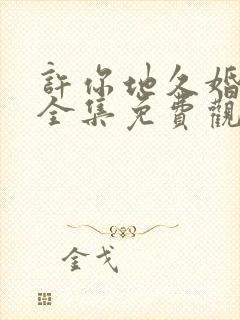 許你地久婚
全集免費觀
金戈